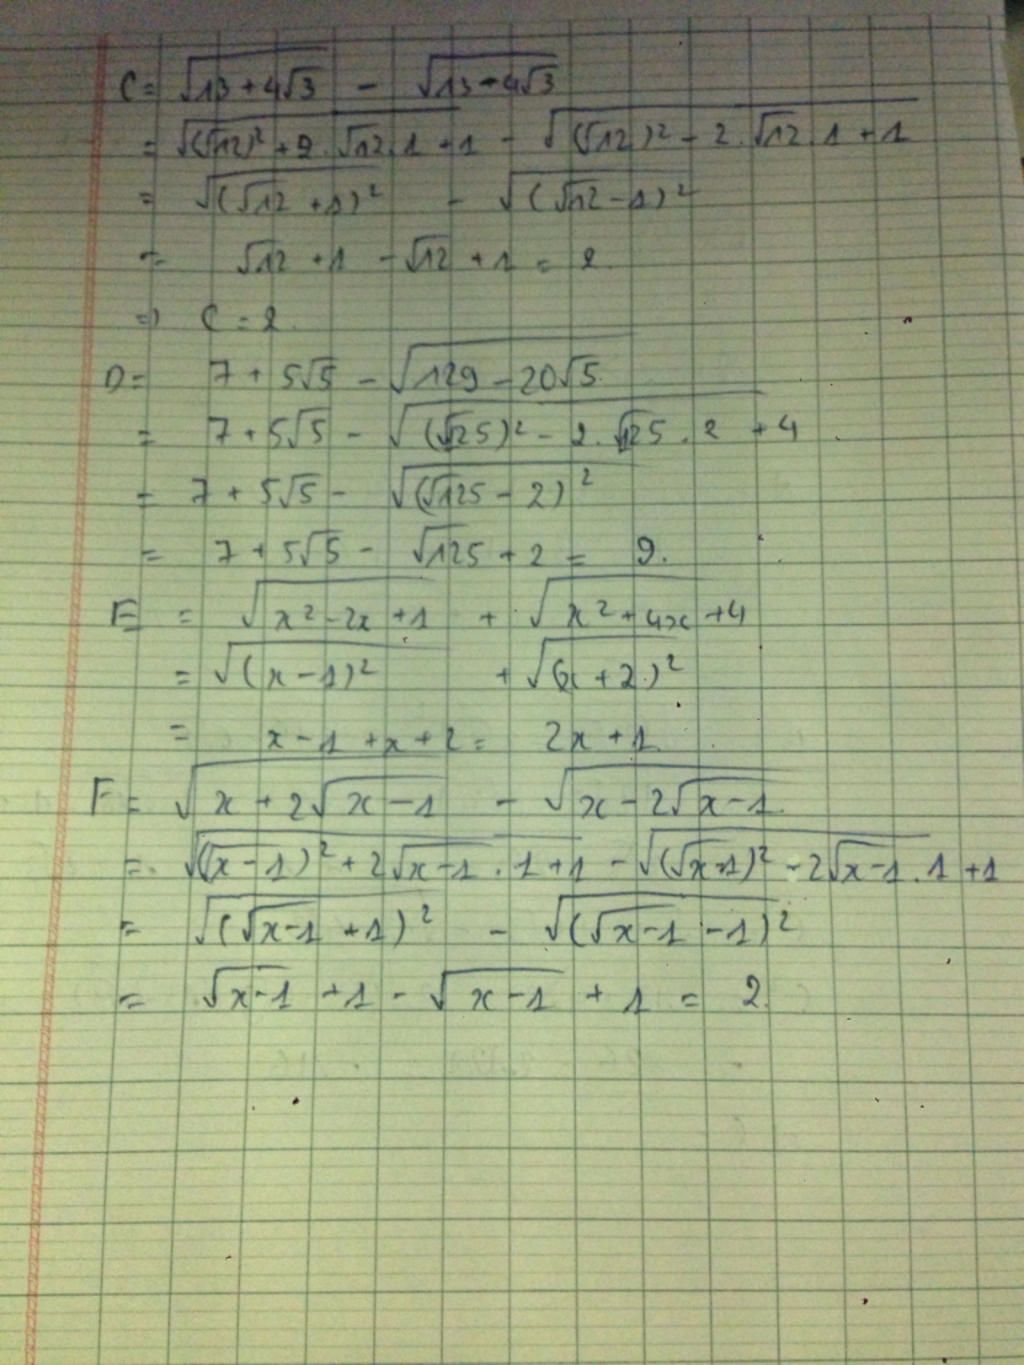 C = √(13 + 4√3) - √(13 - 4√3)
= √((√12)² + 2.√12.1 + 1) - √((√12)² - 2.√12.1 + 1)
= √((√12 + 1)²) - √((√12 - 1)²)
= √12 + 1 - √12 + 1 = 2
=> C = 2.
D = 7 + 5√5 - √(129 - 20√5)
= 7 + 5√5 - √((√125)² - 2.√125.2 + 4)
= 7 + 5√5 - √((√125 - 2)²)
= 7 + 5√5 - √125 + 2 = 9.
E = √(x² - 2x + 1) + √(x² + 4x + 4)
= √((x - 1)²) + √((x + 2)²)
= x - 1 + x + 2 = 2x + 1
F = √(x + 2√(x - 1)) - √(x - 2√(x - 1))
= √((√(x - 1))² + 2√(x - 1).1 + 1) - √((√(x - 1))² - 2√(x - 1).1 + 1)
= √((√(x - 1) + 1)²) - √((√(x - 1) - 1)²)
= √(x - 1) + 1 - √(x - 1) + 1 = 2